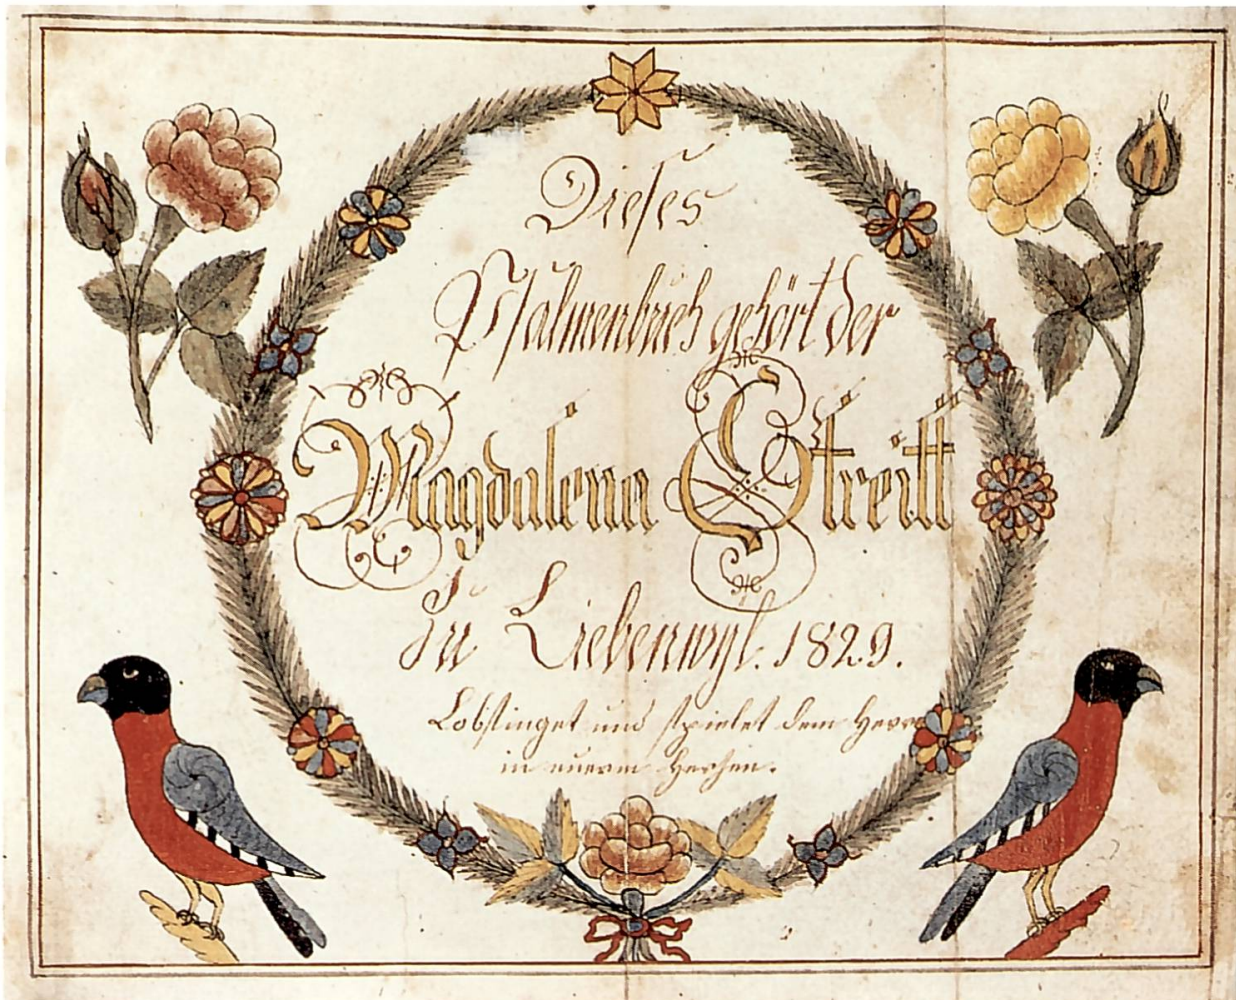 Dieses
Psalmenbuch gehört der
Magdalena Streitt
Zu Liebenwyl. 1829.
Lobsinget und spielet dem Herren
in euerm Herzen.